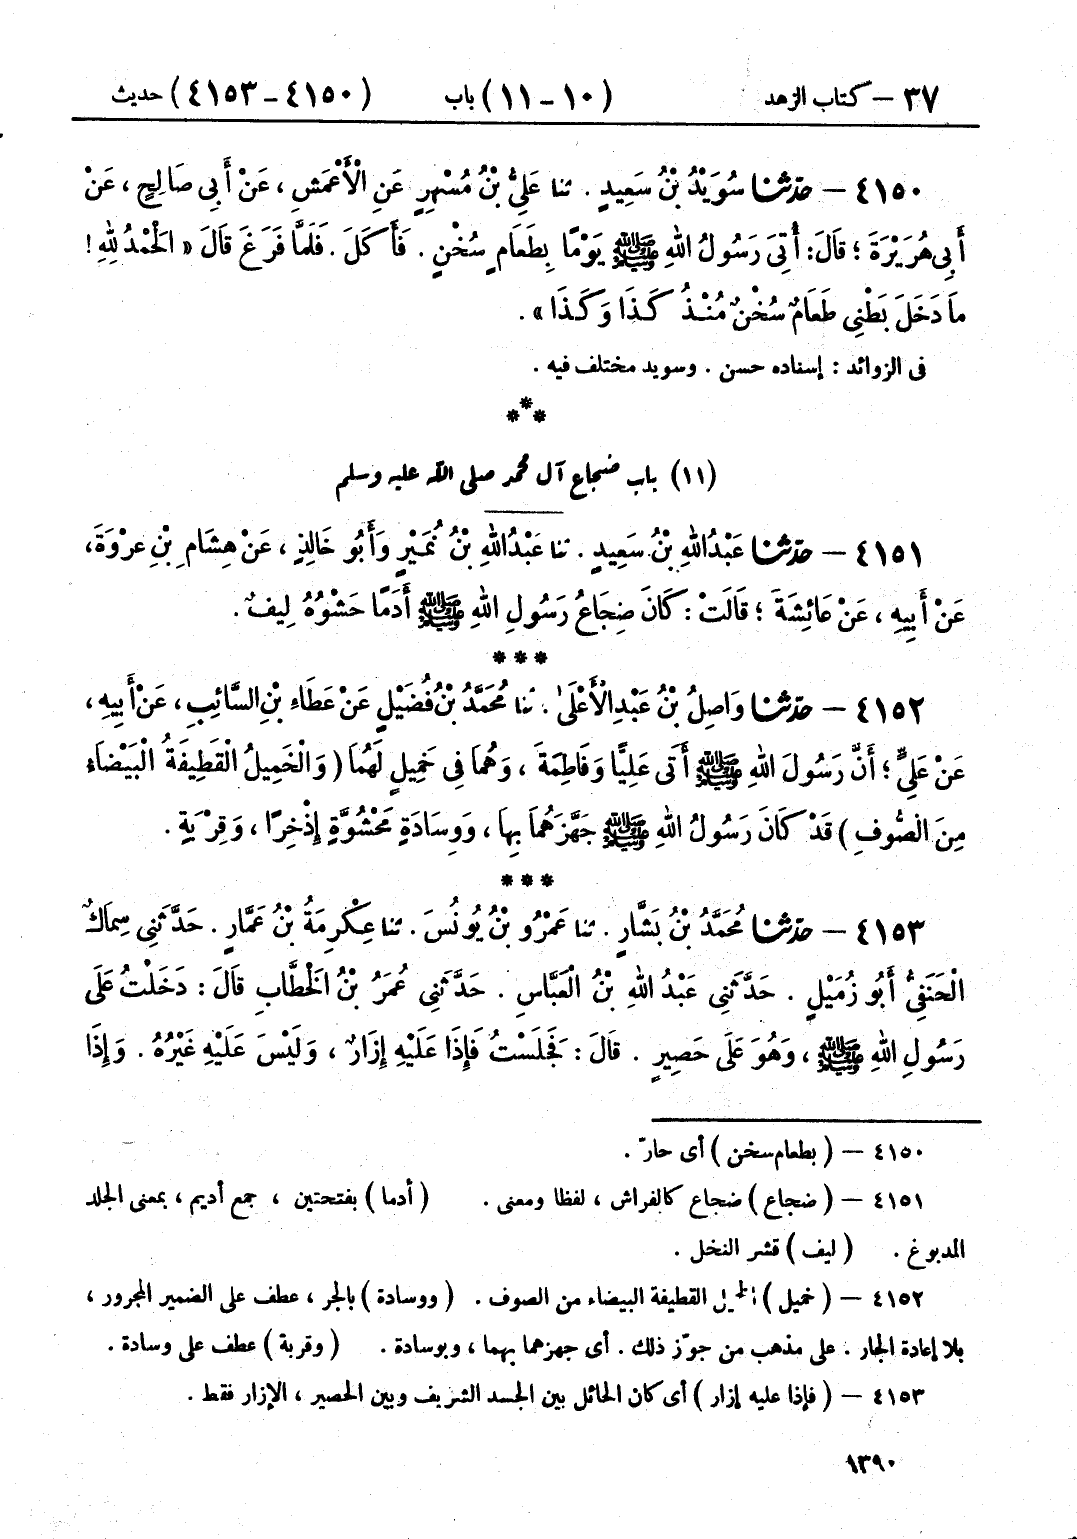 ٣٧ – كتاب الزهد (١٠ – ١١) باب (٤١٥٠ – ٤١٥٣) حديث
٤١٥٠ – حدّثنا سُوَيْدُ بْنُ سَعِيدٍ . ثنا عَلِيُّ بْنُ مُسْهِرٍ عَنِ الْأَعْمَشِ ، عَنْ أَبِى صَالِحٍ ، عَنْ
أَبِى هُرَيْرَةَ ؛ قَالَ: أُتِىَ رَسُولُ اللهِ ﷺ يَوْمًا بِطَعَامٍ سُخْنٍ . فَأَكَلَ . فَلَمَّا فَرَغَ قَالَ « الْحَمْدُ لِلهِ !
مَا دَخَلَ بَطْنِى طَعَامٌ سُخْنٌ مُنْذُ كَذَا وَكَذَا » .
فى الزوائد : إسناده حسن . وسويد مختلف فيه .
***
(١١) باب ضجاع آل محمد صلى الله عليه وسلم
٤١٥١ – حدّثنا عَبْدُ اللهِ بْنُ سَعِيدٍ . ثنا عَبْدُ اللهِ بْنُ نُمَيْرٍ وَأَبُو خَالِدٍ ، عَنْ هِشَامِ بْنِ عرْوَةَ ،
عَنْ أَبِيهِ ، عَنْ عَائِشَةَ ؛ قَالَتْ : كَانَ ضِجَاعُ رَسُولِ اللهِ ﷺ أَدَمًا حَشْوُهُ لِيفٌ .
***
٤١٥٢ – حدّثنا وَاصِلُ بْنُ عَبْدِ الْأَعْلَىٰ . ثنا مُحَمَّدُ بْنُ فُضَيْلٍ عَنْ عَطَاءِ بْنِ السَّائِبِ ، عَنْ أَبِيهِ ،
عَنْ عَلِيٍّ ؛ أَنَّ رَسُولَ اللهِ ﷺ أَتَى عَلِيًّا وَفَاطِمَةَ ، وَهُمَا فِى خَمِيلٍ لَهُمَا ( وَالْخَمِيلُ الْقَطِيفَةُ الْبَيْضَاءِ
مِنَ الصُّوفِ ) قَدْ كَانَ رَسُولُ اللهِ ﷺ جَهَّزَهُمَا بِهَا ، وَوِسَادَةٍ مَحْشُوَّةٍ إِذْخِرًا ، وَقِرْبَةٍ .
***
٤١٥٣ – حدّثنا مُحَمَّدُ بْنُ بَشَّارٍ . ثنا عَمْرُو بْنُ يُونُسَ . ثنا عِكْرِمَةُ بْنُ عَمَّارٍ . حَدَّثَنِى سِمَاكٌ
الْحَنَفِيُّ أَبُو زُمَيْلٍ . حَدَّثَنِى عَبْدُ اللهِ بْنُ الْعَبَّاسِ . حَدَّثَنِى عُمَرُ بْنُ الْخَطَّابِ قَالَ : دَخَلْتُ عَلَى
رَسُولِ اللهِ ﷺ ، وَهُوَ عَلَى حَصِيرٍ . قَالَ : فَجَلَسْتُ فَإِذَا عَلَيْهِ إِزَارٌ ، وَلَيْسَ عَلَيْهِ غَيْرُهُ . وَإِذَا
٤١٥٠ – ( بطعام سخن ) أى حارّ .
٤١٥١ – ( ضجاع ) ضجاع كالفراش ، لفظا ومعنى . ( أدما ) بفتحتين ، جمع أديم ، بمعنى الجلد
المدبوغ . ( ليف ) قشر النخل .
٤١٥٢ – ( خميل ) القطيفة البيضاء من الصوف . ( ووسادة ) بالجر ، عطف على الضمير المجرور ،
بلا إعادة الجار . على مذهب من جوّز ذلك . أى جهزهما بهما ، وبوسادة . ( وقربة ) عطف على وسادة .
٤١٥٣ – ( فإذا عليه إزار ) أى كان الحائل بين الجسد الشريف وبين الحصير ، الإزار فقط .
١٣٩٠